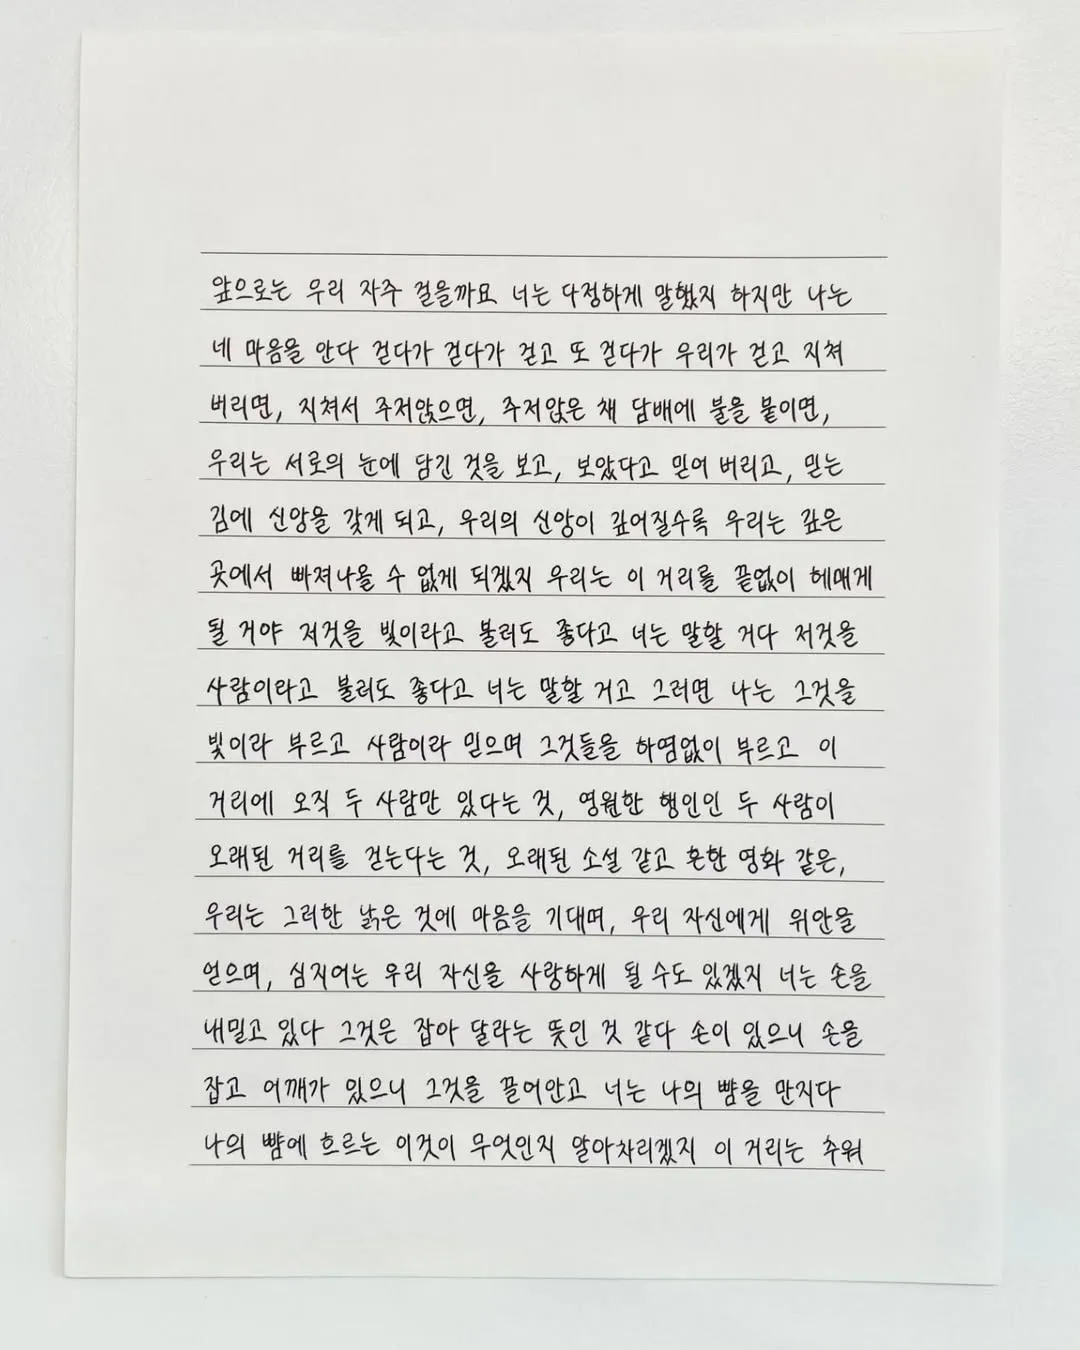 앞으로는 우리 자주 걸을까요 너는 다정하게 말했지 하지만 나는
네 마음을 안다 걷다가 걷다가 걷고 또 걷다가 우리가 걷고 지쳐
버리면, 지쳐서 주저앉으면, 주저앉은 채 담배에 불을 붙이면,
우리는 서로의 눈에 담긴 것을 보고, 보았다고 믿어 버리고, 믿는
김에 신앙을 갖게 되고, 우리의 신앙이 깊어질수록 우리는 깊은
곳에서 빠져나올 수 없게 되겠지 우리는 이 거리를 끝없이 헤매게
될 거야 저것을 빛이라고 불러도 좋다고 너는 말할 거다 저것을
사람이라고 불러도 좋다고 너는 말할 거고 그러면 나는 그것을
빛이라 부르고 사람이라 믿으며 그것들을 하염없이 부르고 이
거리에 오직 두 사람만 있다는 것, 영원한 행인인 두 사람이
오래된 거리를 걷는다는 것, 오래된 소설 같고 흔한 영화 같은,
우리는 그러한 낡은 것에 마음을 기대며, 우리 자신에게 위안을
얻으며, 심지어는 우리 자신을 사랑하게 될 수도 있겠지 너는 손을
내밀고 있다 그것은 잡아 달라는 뜻인 것 같다 손이 있으니 손을
잡고 어깨가 있으니 그것을 끌어안고 너는 나의 뺨을 만지다
나의 뺨에 흐르는 이것이 무엇인지 알아차리겠지 이 거리는 추워